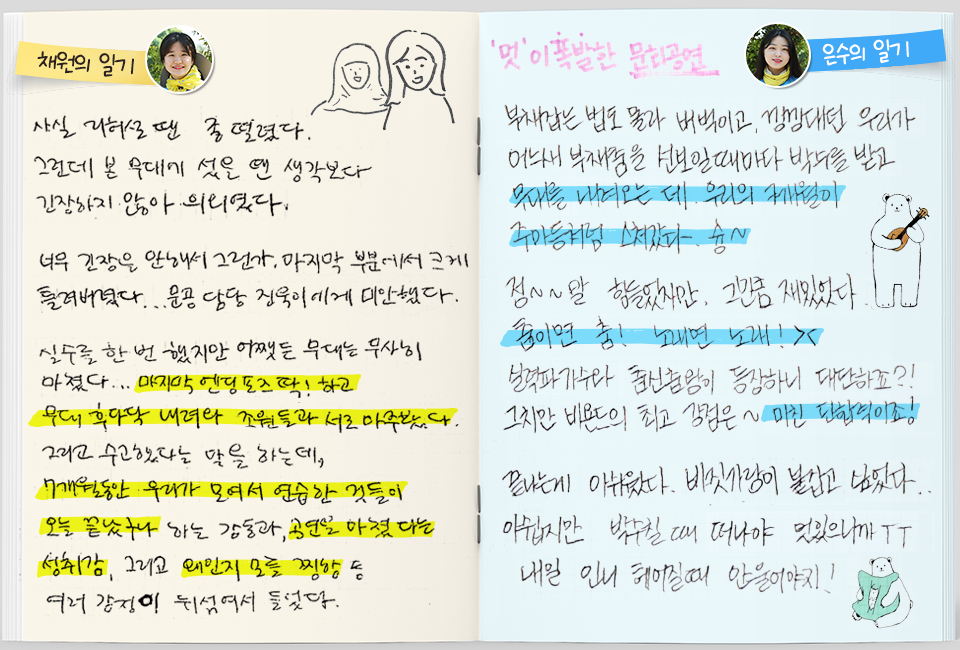 채원의 일기
사실 리허설 땐 좀 떨렸다.
그런데 본 무대에 섰을 땐 생각보다
긴장하지 않아 의외였다.
너무 긴장을 안해서 그런가, 마지막 부분에서 크게
틀려버렸다... 문공 담당 정욱이에게 미안했다.
실수를 한 번 했지만 어쨌든 무대는 무사히
마쳤다... 마지막 엔딩포즈 딱! 하고
무대 후다닥 내려와 조원들과 서로 마주봤다.
그리고 수고했다는 말을 하는데,
7개월동안 우리가 모여서 연습한 것들이
오늘 끝났구나 하는 감동과, 공연을 마쳤다는
성취감, 그리고 왜인지 모를 찡함 등
여러 감정이 뒤섞여서 들었다.
은수의 일기
'멋'이 폭발한 문화공연
부채잡는 법도 몰라 버벅이고, 낑낑대던 우리가
어느새 부채춤을 선보일때마다 박수를 받고
무대를 내려오는 데 우리의 7개월이
주마등처럼 스쳐갔다. 슝~
정~~말 힘들었지만, 그만큼 재밌었다
춤이면 춤! 노래면 노래! ><
실력파가수와 춤신춤왕이 등장하니 대단하죠?!
그치만 비욘드의 최고 강점은~ 미친 단합력이죠!
끝나는게 아쉬웠다. 바짓가랑이 붙잡고 싶었다..
아쉽지만 박수칠 때 떠나야 멋있으니까 ㅜㅜ
내일 인니 헤어질때 안울어야지!